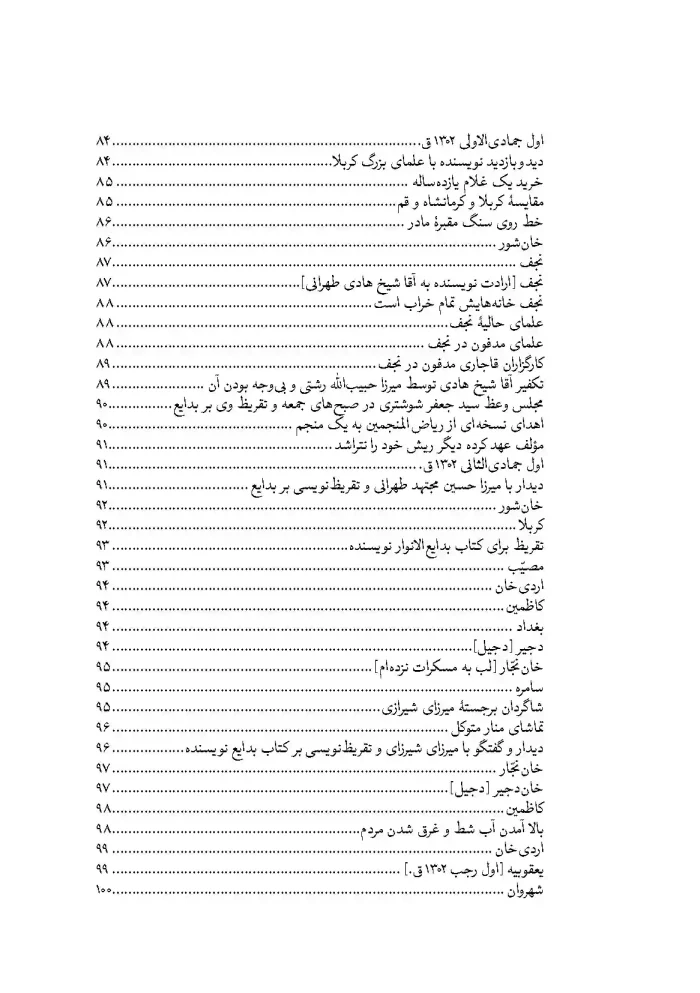 اول جمادی‌الاولی ۱۳۰۲ ق. ........ ۸۴
دید و بازدید نویسنده با علمای بزرگ کربلا ........ ۸۴
خرید یک غلام یازده‌ساله ........ ۸۵
مقایسۀ کربلا و کرمانشاه و قم ........ ۸۵
خط روی سنگ مقبرۀ مادر ........ ۸۶
خان‌شور ........ ۸۶
نجف ........ ۸۷
نجف [ارادت نویسنده به آقا شیخ هادی طهرانی] ........ ۸۷
نجف خانه‌هایش تمام خراب است ........ ۸۸
علمای حالیۀ نجف ........ ۸۸
علمای مدفون در نجف ........ ۸۸
کارگزاران قاجاری مدفون در نجف ........ ۸۹
تکفیر آقا شیخ هادی توسط میرزا حبیب‌الله رشتی و بی‌وجه بودن آن ........ ۸۹
مجلس وعظ سید جعفر شوشتری در صبح‌های جمعه و تقریظ وی بر بدایع ........ ۹۰
اهدای نسخه‌ای از ریاض المنجمین به یک منجم ........ ۹۰
مؤلف عهد کرده دیگر ریش خود را نتراشد ........ ۹۱
اول جمادی‌الثانی ۱۳۰۲ ق. ........ ۹۱
دیدار با میرزا حسین مجتهد طهرانی و تقریظ‌نویسی بر بدایع ........ ۹۱
خان‌شور ........ ۹۲
کربلا ........ ۹۲
تقریظ برای کتاب بدایع‌الانوار نویسنده ........ ۹۳
مصیّب ........ ۹۳
اردی‌خان ........ ۹۴
کاظمین ........ ۹۴
بغداد ........ ۹۴
دجیر [دجیل] ........ ۹۴
خان‌نجّار [لب به مسکرات نزده‌ام] ........ ۹۵
سامره ........ ۹۵
شاگردان برجستۀ میرزای شیرازی ........ ۹۵
تماشای منار متوکل ........ ۹۶
دیدار و گفتگو با میرزای شیرزای و تقریظ‌نویسی بر کتاب بدایع نویسنده ........ ۹۶
خان‌نجّار ........ ۹۷
خان‌دجیر [دجیل] ........ ۹۷
کاظمین ........ ۹۸
بالا آمدن آب شط و غرق شدن مردم ........ ۹۸
اردی‌خان ........ ۹۹
یعقوبیه [اول رجب ۱۳۰۲ ق.] ........ ۹۹
شهروان ........ ۱۰۰